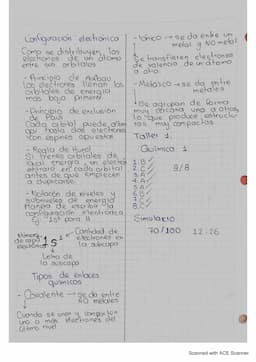 Configuración electrónica
Como se distribuyen, los
electrones de un átomo
entre sus orbitales
- Principio de Aufbau
Los electrones llenan los
orbitales de energía
mas baja primero
- Principio de exclusión
de Pauli
Cada orbital puede alber
gar hasta dos electrones
con espines opuestos
- Regla de Hund
Si tienes orbitales de
igual energía, un electrón
entrará en cada orbital
antes de que empiecen
a duplicarse
- Notación de niveles y
subniveles de energía
Manera de escribir la
configuración electrónica
Ej: 1s¹ para H
1s¹
Cantidad de
electrones en
la subcapa
Letra de
la subcapa
Tipos de enlaces
químicos
- Covalente → se da entre
NO metales
Cuando se unen y comparten
uno o más electrones del
último nivel
- Iónico → se da entre un
metal y NO metal
Se transfieren electrones
de valencia de un átomo
a otro
- Metálico → se da entre
metales
Se agrupan de forma
muy cercana unos a otros
lo que produce estructu
ras muy compactas
Taller 1
Química: 1
1. B ✓
2. C ✓
3. A ✓
4. A ✓
5. A ✓
6. B ✓
7. C ✓
8. C ✓
8/8
Simulacro
70/100 12-26
Scanned with ACE Scanner